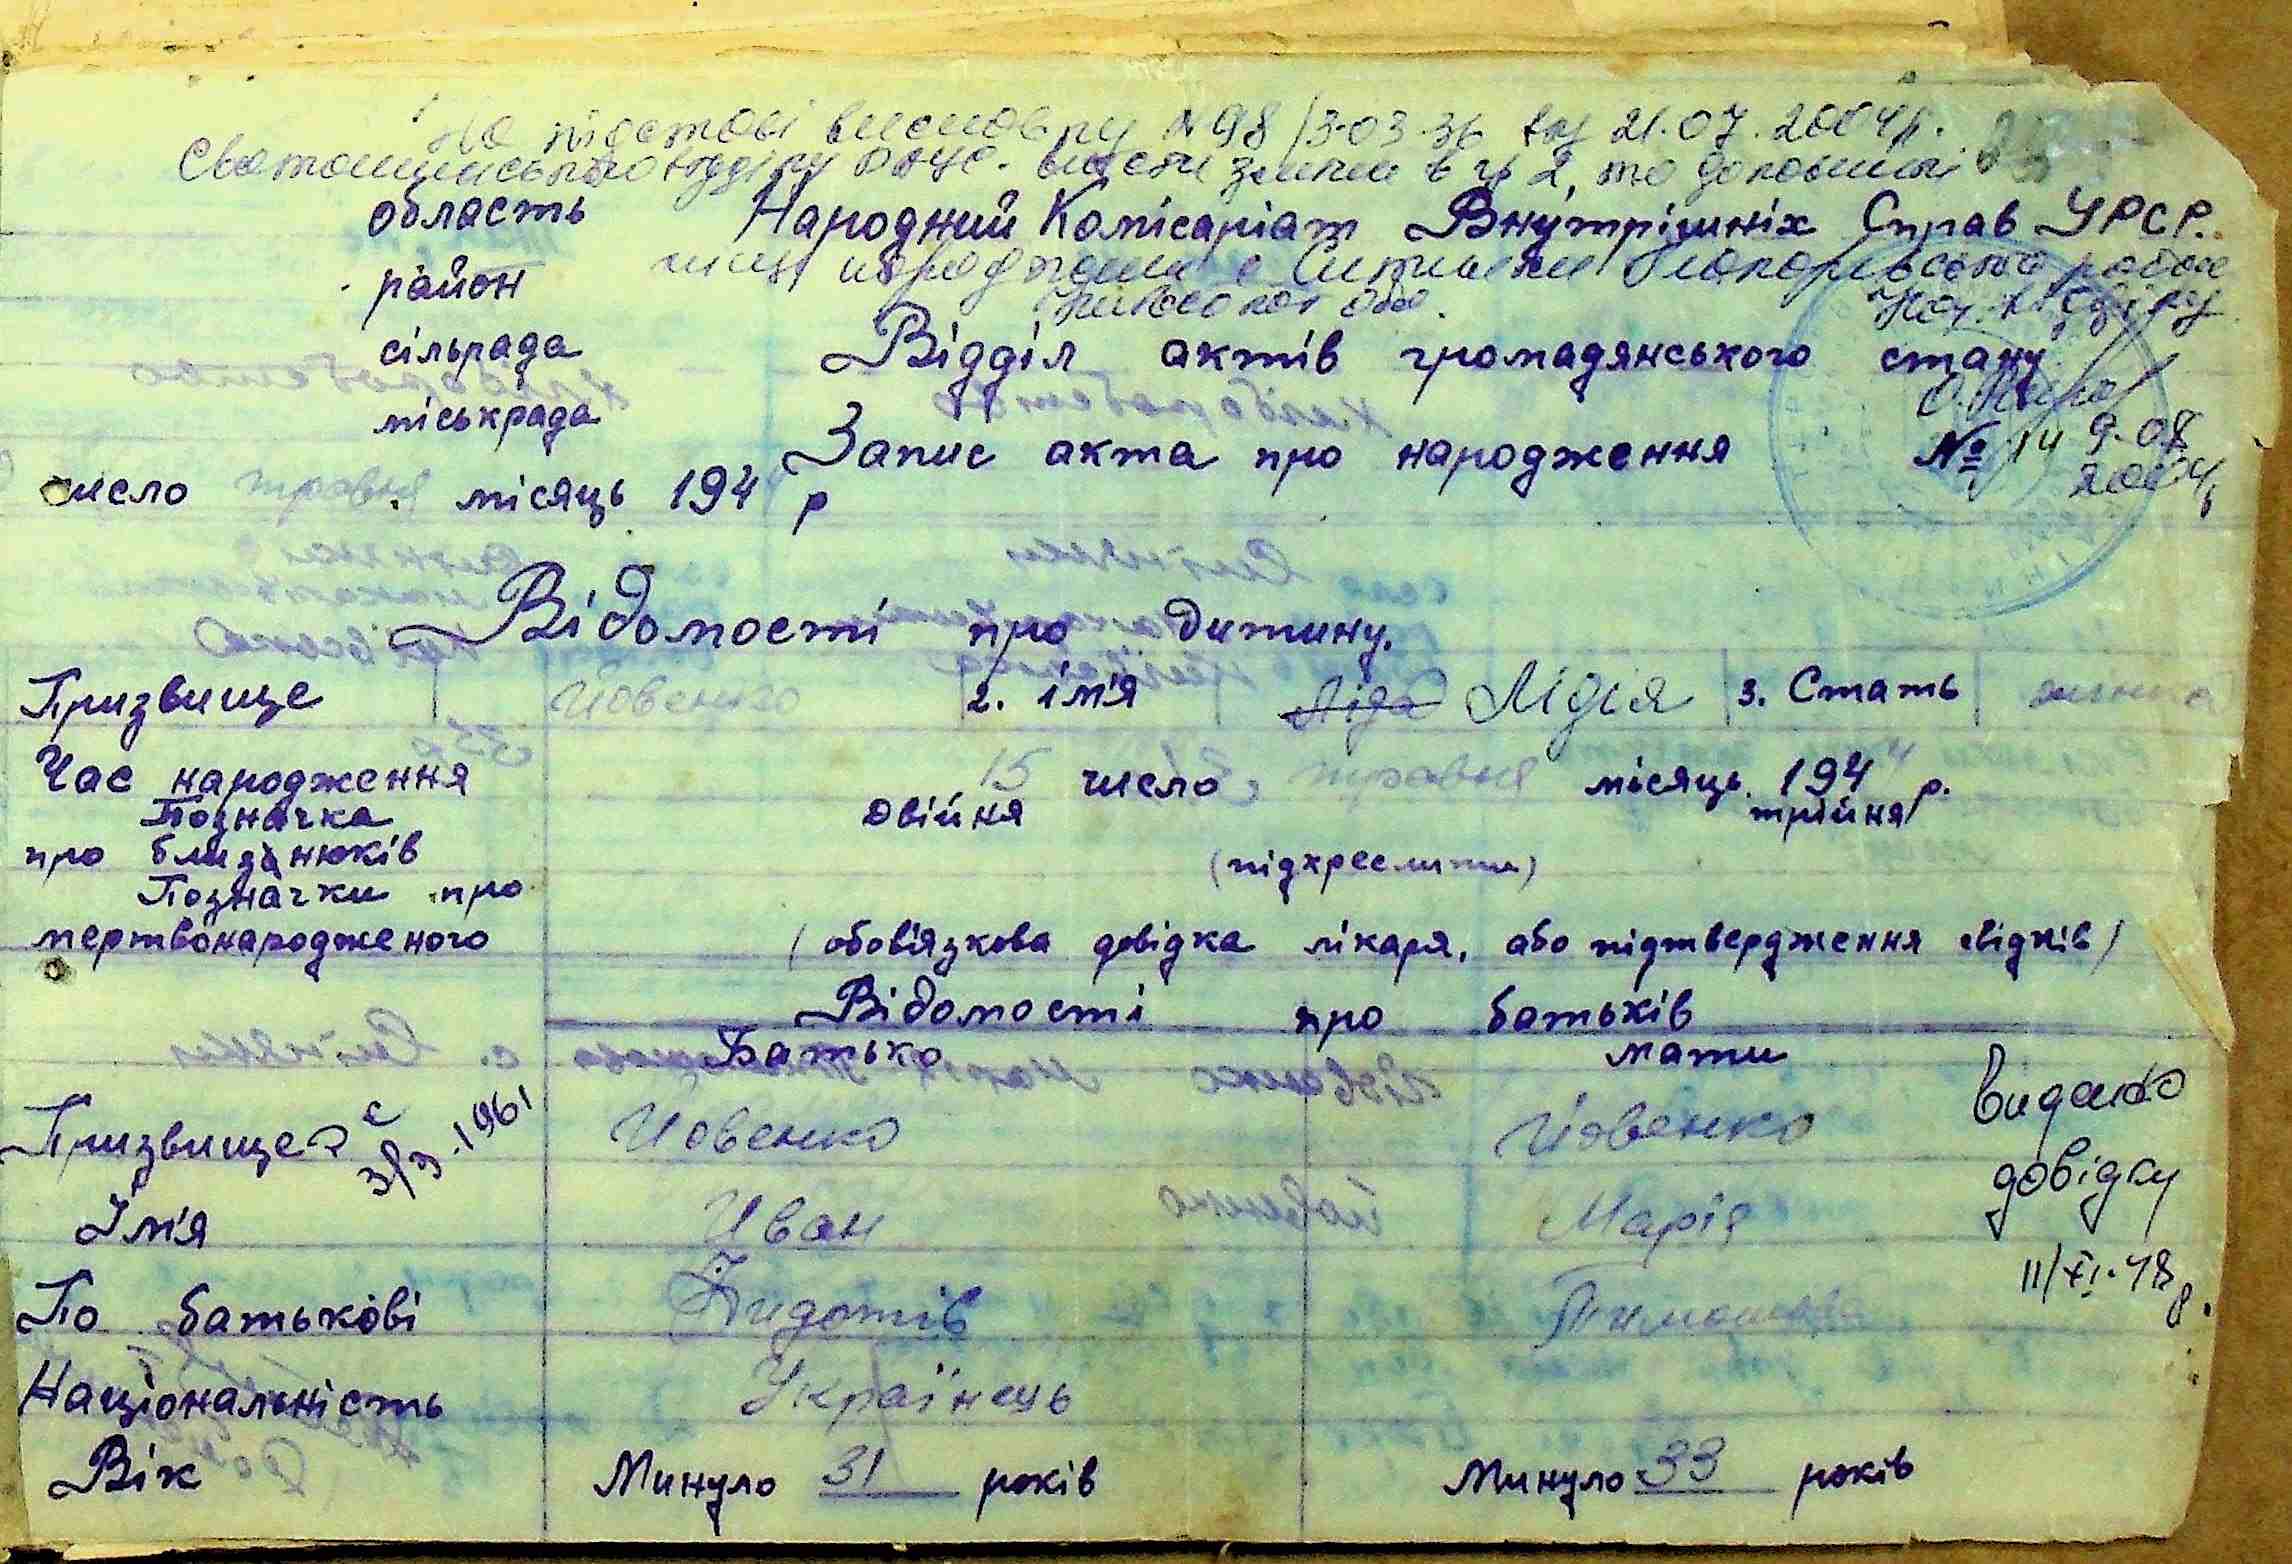 На підставі висновку № 98/3-03-36 від 21.07.2004р.
Святошинського відділу РАЦС. внести зміни в гр 2, та доповнити
область Народний Комісаріат Внутрішніх Справ УРСР.
місце народження с Ситняки Макарівського району
район Київської обл. Нач. відділу
сільрада Відділ актів громадянського стану
міськрада
Запис акта про народження № 14 9.08
2004р
число травня місяць 194 р
Відомості про дитину.
Призвище Йовенко 2. ім'я Ліда Лідія 3. Стать жіноча
Час народження 15 число, травня місяць 1944 р.
Позначка двійня трійня
про близнюків (підкреслити)
Позначки про
мертвонародженого (обов'язкова довідка лікаря, або підтвердження свідків)
Відомості про батьків
Батько мати
Призвище Йовенко Йовенко видано
1961 довідку
Ім'я Иван Марія
11/XI.48р.
По батькові Тимошова
Національність Українець
Вік Минуло 31 років Минуло 33 років